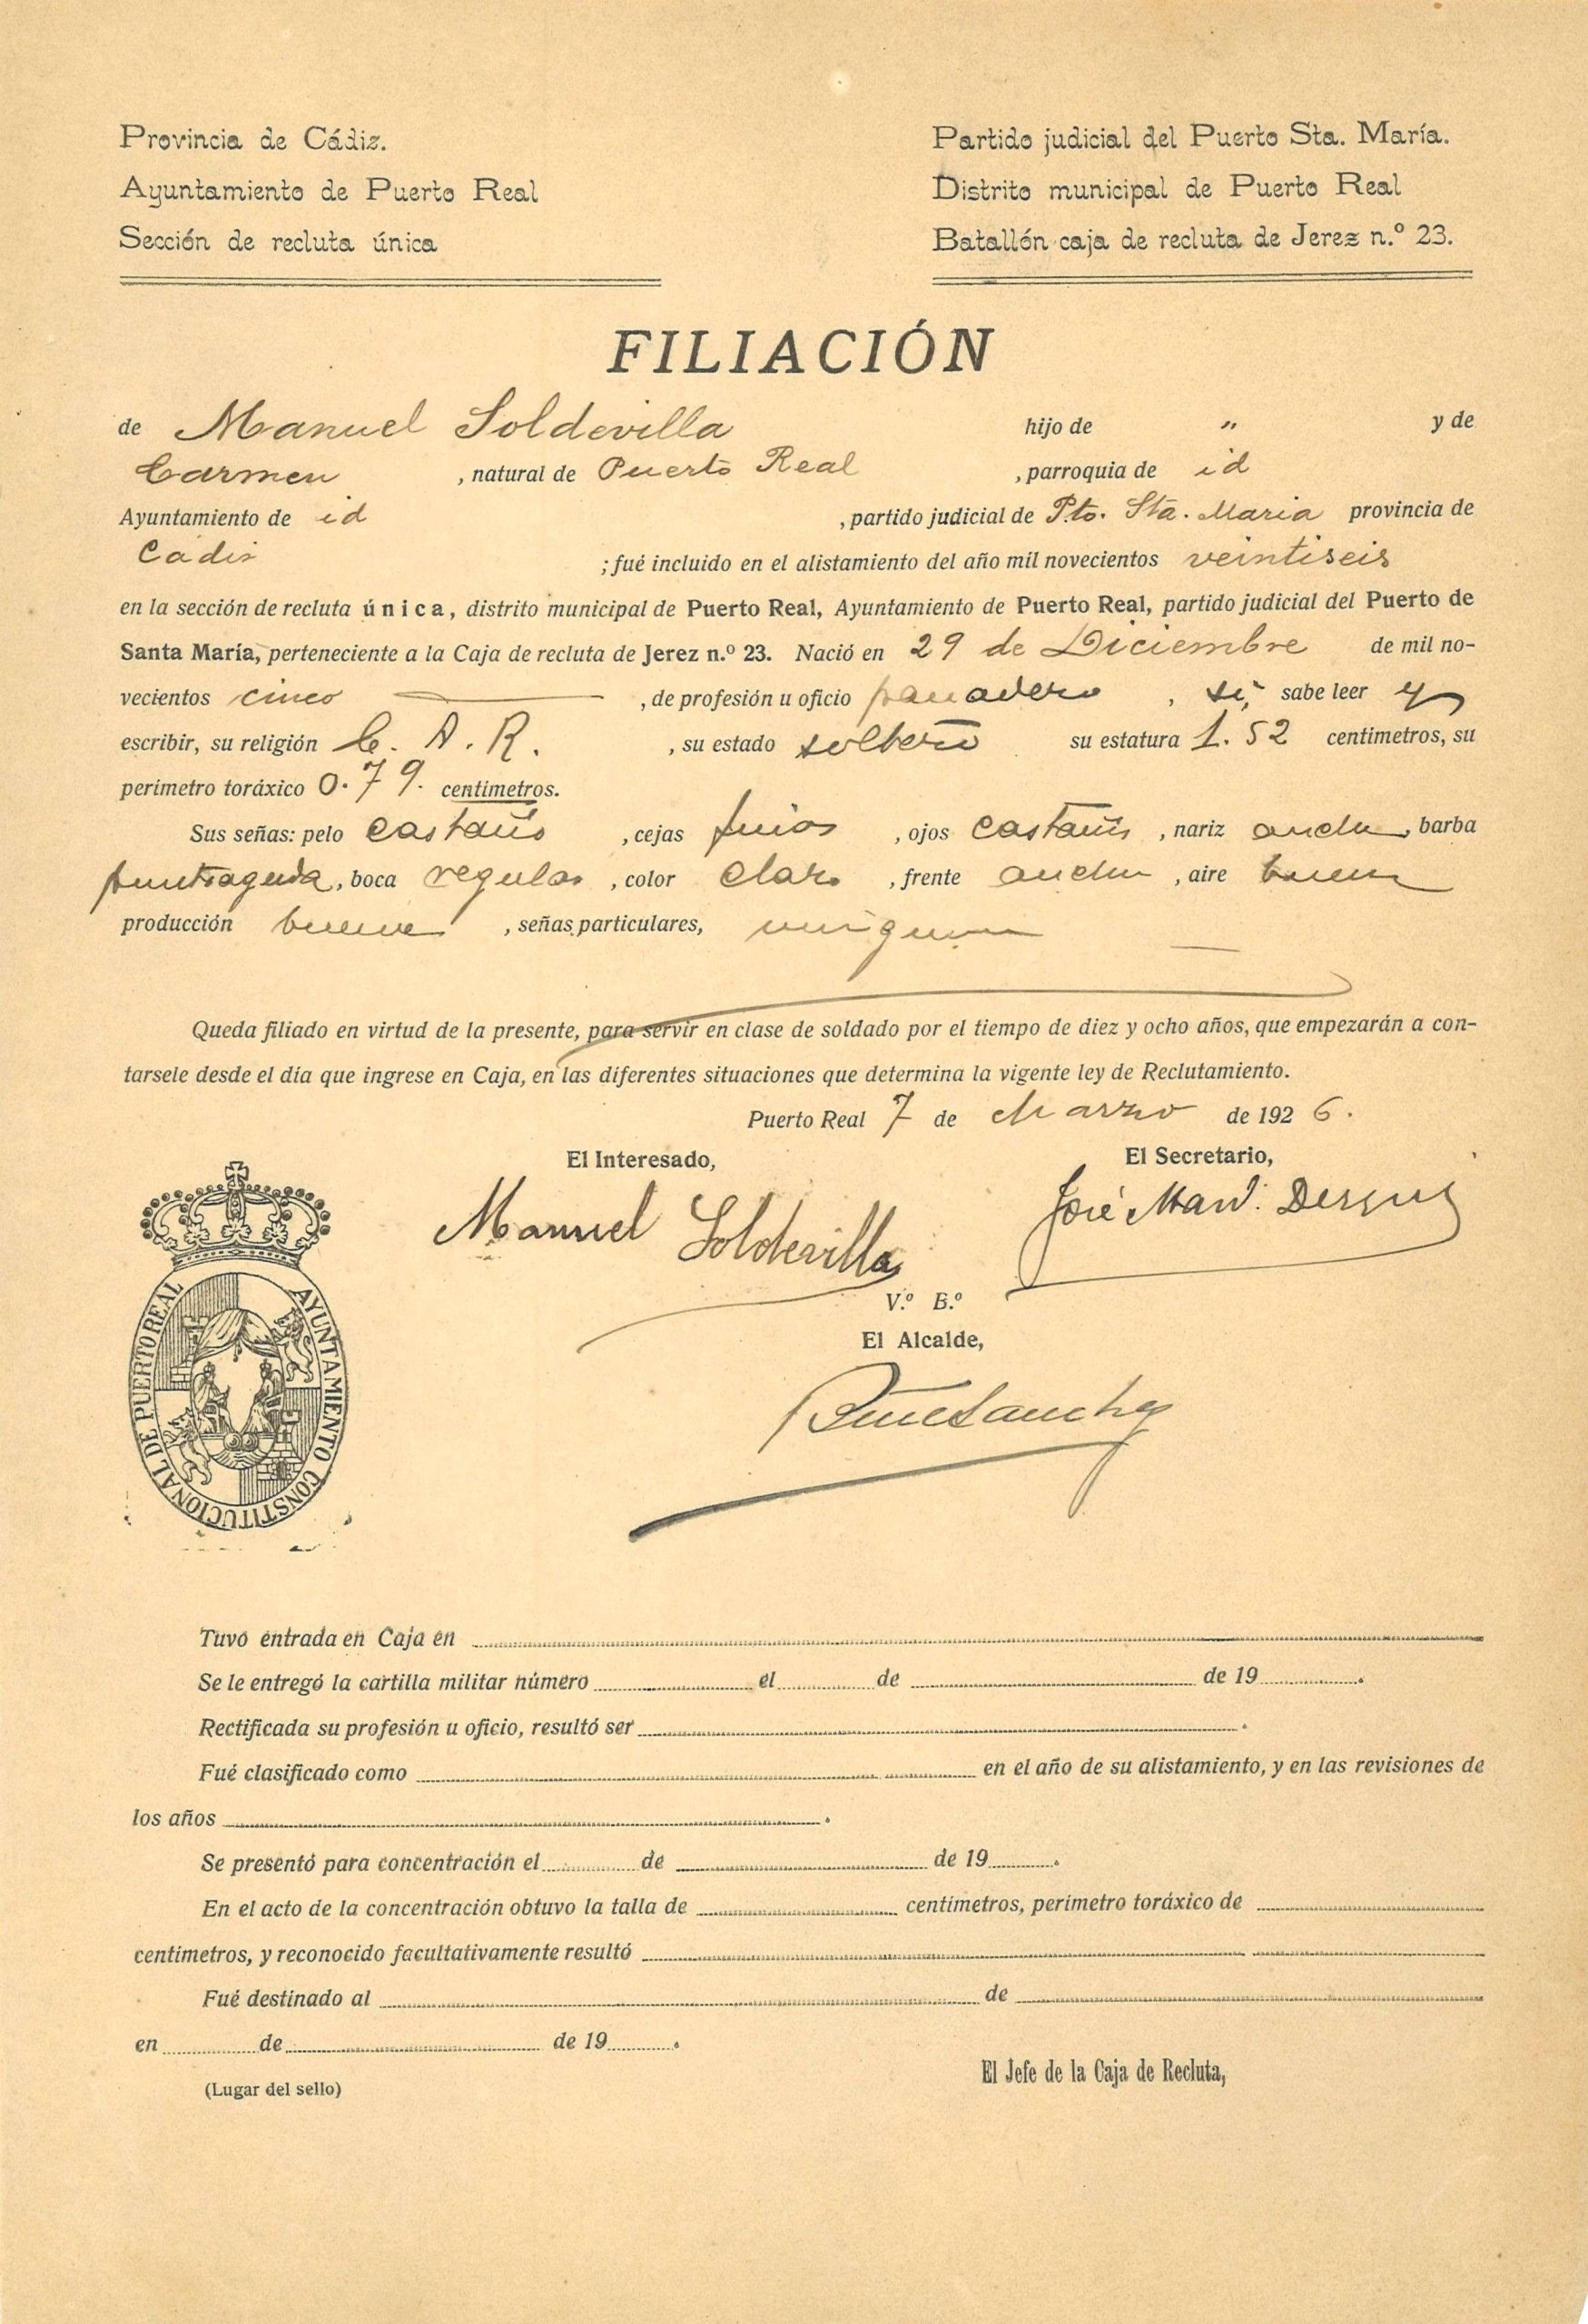 Provincia de Cádiz.
Ayuntamiento de Puerto Real
Sección de recluta única
Partido judicial del Puerto Sta. María.
Distrito municipal de Puerto Real
Batallón caja de recluta de Jerez n.º 23.
FILIACIÓN
de Manuel Soldevilla hijo de " y de
Carmen , natural de Puerto Real , parroquia de id
Ayuntamiento de id , partido judicial de Pto. Sta. Maria provincia de
Cadiz ; fué incluido en el alistamiento del año mil novecientos veintiseis
en la sección de recluta única, distrito municipal de Puerto Real, Ayuntamiento de Puerto Real, partido judicial del Puerto de
Santa María, perteneciente a la Caja de recluta de Jerez n.º 23. Nació en 29 de Diciembre de mil no-
vecientos cinco , de profesión u oficio panadero , si, sabe leer y
escribir, su religión C. A. R. , su estado soltero su estatura 1.52 centimetros, su
perimetro toráxico 0.79. centimetros.
Sus señas: pelo castaño , cejas , ojos castaños , nariz ancha , barba
puntiaguda , boca regular , color claro , frente ancha , aire bueno
producción buena , señas particulares, ninguna
Queda filiado en virtud de la presente, para servir en clase de soldado por el tiempo de diez y ocho años, que empezarán a con-
tarsele desde el día que ingrese en Caja, en las diferentes situaciones que determina la vigente ley de Reclutamiento.
Puerto Real 7 de Marzo de 1926.
El Interesado,
El Secretario,
Manuel Soldevilla
José
V.º B.º
El Alcalde,
AYUNTAMIENTO CONSTITUCIONAL DE PUERTO REAL
Tuvo entrada en Caja en
Se le entregó la cartilla militar número el de de 19 .
Rectificada su profesión u oficio, resultó ser .
Fué clasificado como en el año de su alistamiento, y en las revisiones de
los años .
Se presentó para concentración el de de 19 .
En el acto de la concentración obtuvo la talla de centimetros, perimetro toráxico de
centimetros, y reconocido facultativamente resultó
Fué destinado al de
en de de 19 .
(Lugar del sello)
El Jefe de la Caja de Recluta,